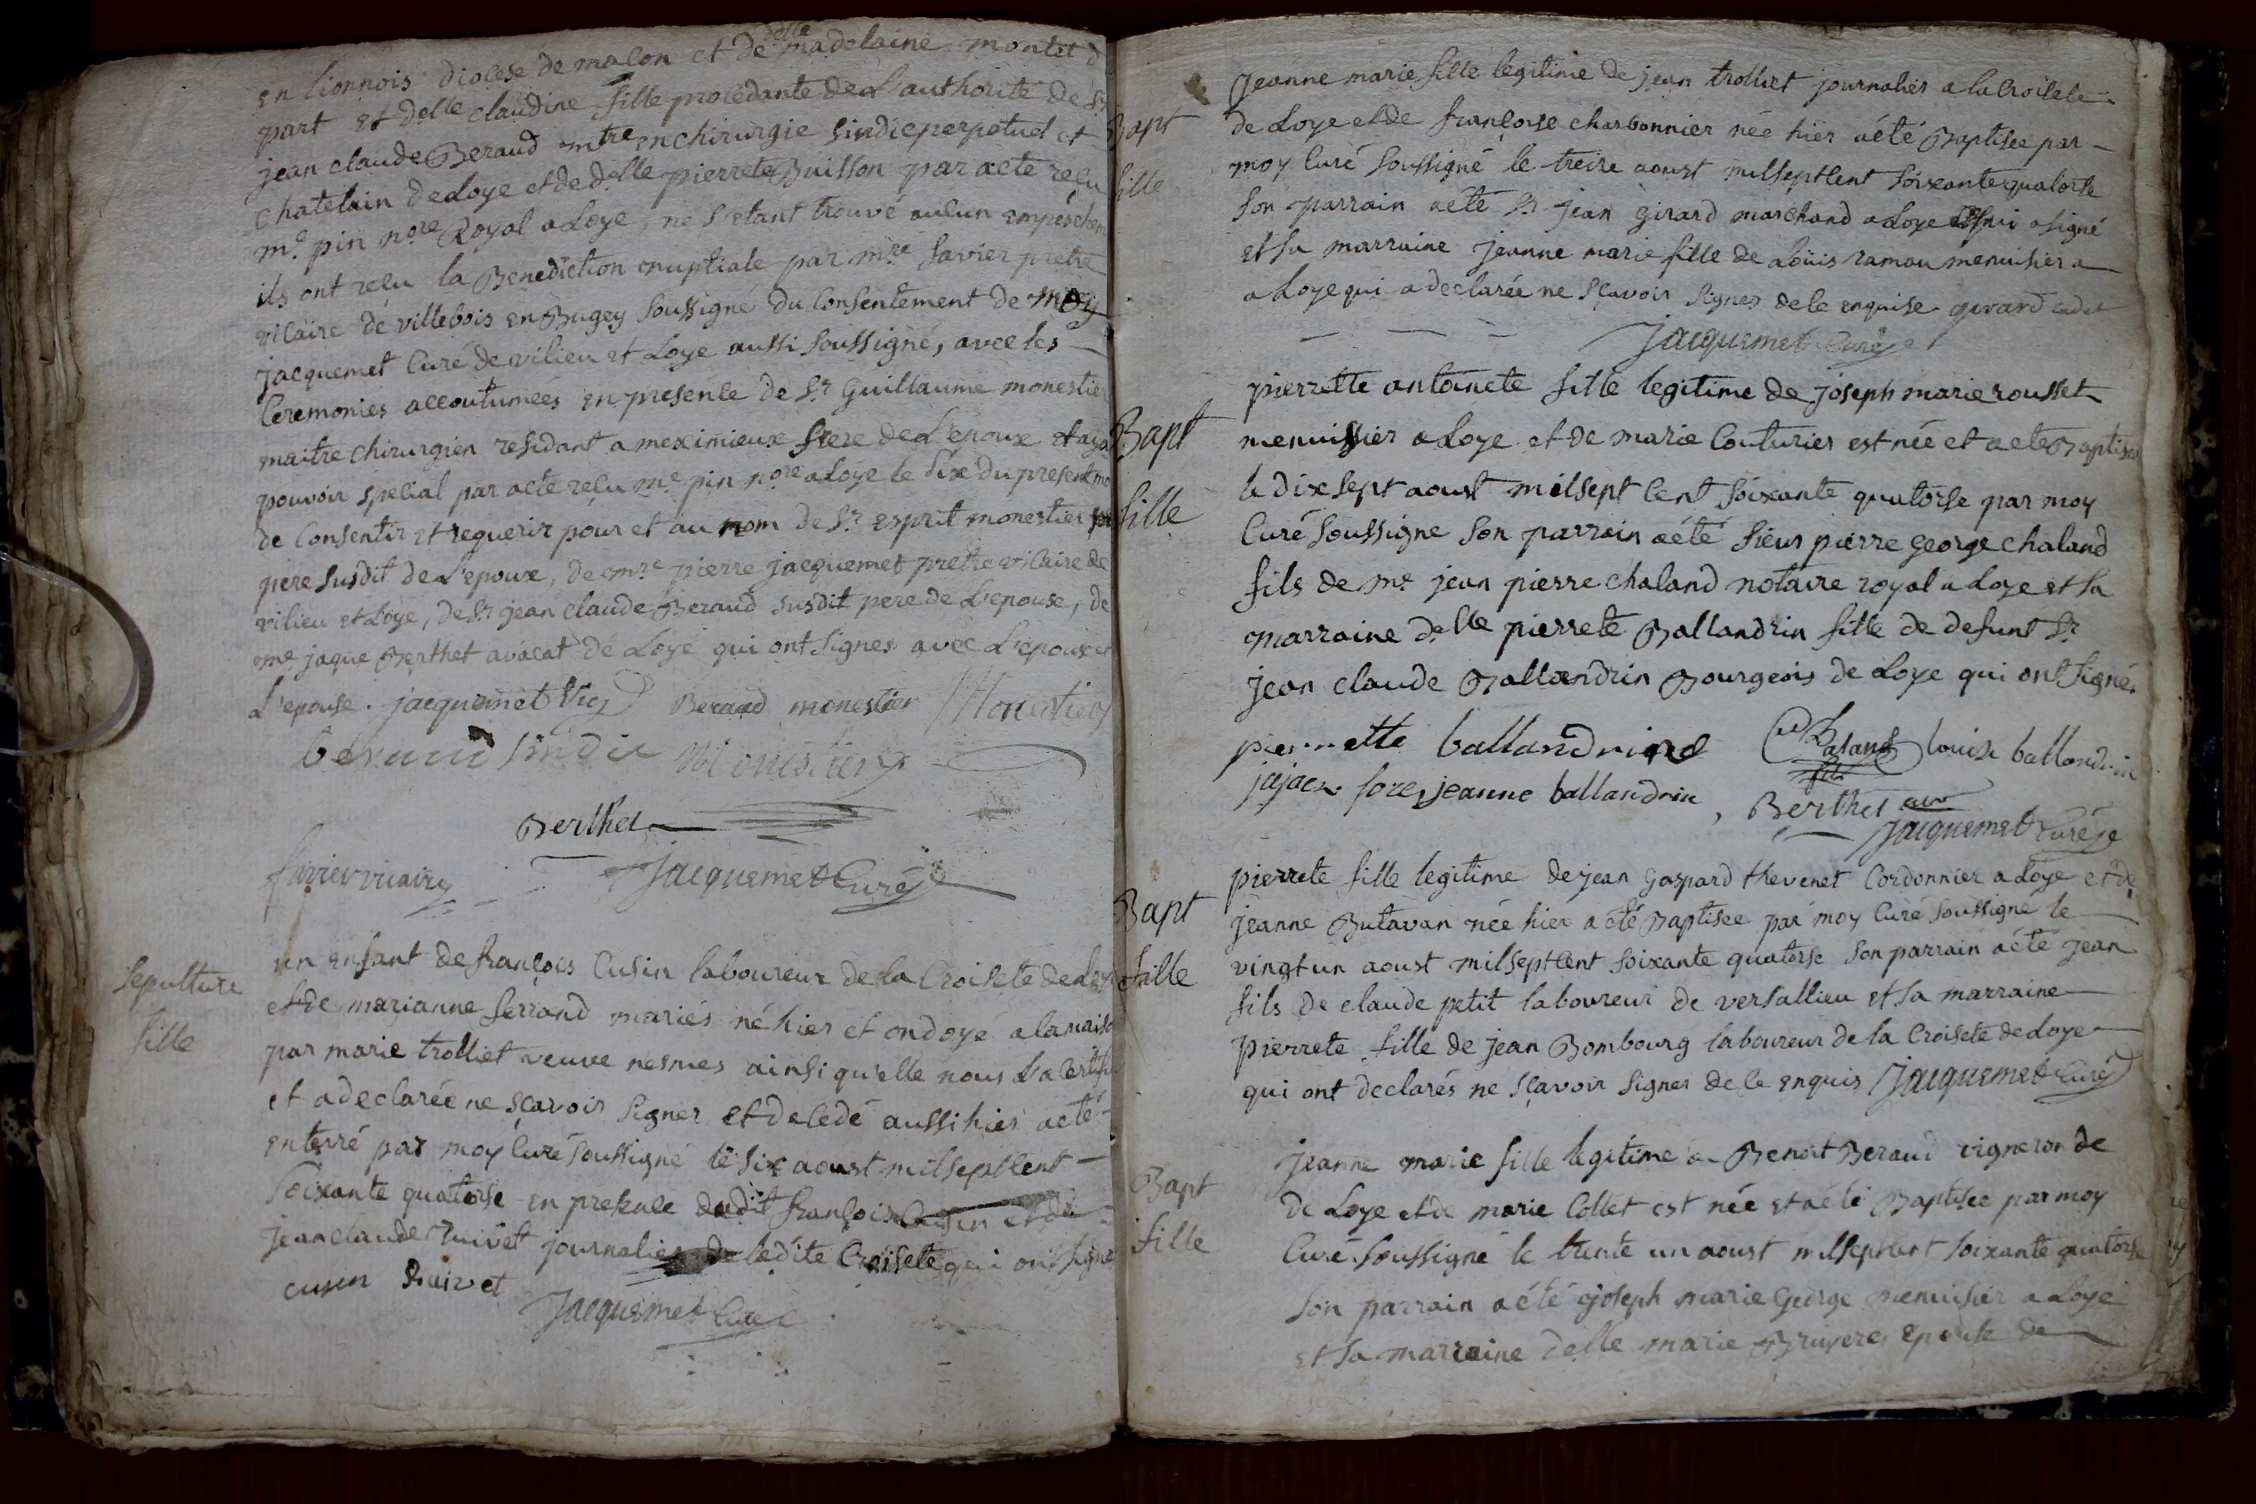 en lionnois diocese de macon et de delle madelaine montet d
part et delle claudine fille procedante de L'authorité de Sr
jean claude Beraud mtre en chirurgie sindic perpetuel et
chatelain de Loye et de delle pierrete Buisson par acte reçu
me pin nore Royal a Loye, ne s'etant trouvé aucun empêchem
ils ont reçu la Benediction nuptiale par mre favier pretre
vicaire de villebois en Bugey soussigné du consentement de moy
jacquemet curé de vilieu et Loye aussi soussigné, avec les
Ceremonies accoutumées en presence de Sr Guillaume monestier
maitre chirurgien residant a meximieux frere de L'epoux et aya
pouvoir special par acte reçu me pin nore a Loye le dix du present mo
de consentir et requerir pour et au nom de Sr esprit monestier
pere susdit de L'epoux, de mre pierre jacquemet pretre vicaire de
vilieu et Loye, de Sr jean claude Beraud susdit pere de L'epouse, de
me jaque Berthet avocat de Loye qui ont signes avec L'epoux et
L'epouse. jacquemet vic Beraud monestier Monestier
beraud sindic Monestier
Berthet
favier vicaire Jacquemet Curé
Sepulture
fille
un enfant de françois Cusin laboureur de la Croisete de Loye
et de marianne ferrand mariés né hier et ondoyé a la maiso
par marie trolliet veuve nesmes ainsi qu'elle nous L'a certifi
et a declarée ne sçavoir signer et decedé aussi hier a eté
enterré par moy Curé soussigné le six aoust mil sept cent
soixante quatorse en presence dudit françois Cusin et de
jean claude Ruivet journalier de ledite Croisete qui ont signé
cusin Ruivet
Jacquemet Curé
Bapt
fille
Jeanne marie fille legitime de jean trolliet journalier a la Croisete
de Loye et de françoise charbonnier née hier a été Baptisée par
moy Curé soussigné le treise aoust mil sept cent soixante quatorse
son parrain a été Sr jean girard marchand a Loye qui a signé
et sa marraine jeanne marie fille de Loüis ramau menuisier a
a Loye qui a declarée ne sçavoir signer de ce enquise girard cadet
Jacquemet Curé
Bapt
fille
pierrette antoinete fille legitime de joseph marie rousset
menuissier a Loye et de marie Couturier est née et a eté Baptisée
le dix sept aoust mil sept cent soixante quatorse par moy
Curé soussigne son parrain a été sieur pierre george chaland
fils de me jean pierre chaland notaire royal a Loye et sa
marraine delle pierrete Ballandrin fille de defunt Sr
jean claude Ballandrin Bourgeois de Loye qui ont signé.
pierrette ballandrine Chaland fils louise ballandrin
jeanne ballandrin, Berthet
Jacquemet Curé
Bapt
fille
pierrete fille legitime de jean Gaspard thevenet Cordonnier a Loye et de
jeanne Butavan née hier a été Baptisée par moy Curé soussigné le
vingt un aoust mil sept cent soixante quatorse son parrain a été jean
fils de claude petit laboureur de versallieu et sa marraine
pierrete fille de jean Bombourg laboureur de la Croisete de Loye
qui ont declarés ne sçavoir signer de ce enquis Jacquemet Curé
Bapt
fille
Jeanne marie fille legitime a Benoit Beraud vigneron de
de Loye et de marie Collet est née et a été Baptisée par moy
Curé soussigné le trente un aoust mil sept cent soixante quatorse
son parrain a été joseph marie George menuisier a Loye
et sa marraine delle marie Bruyere epouse de